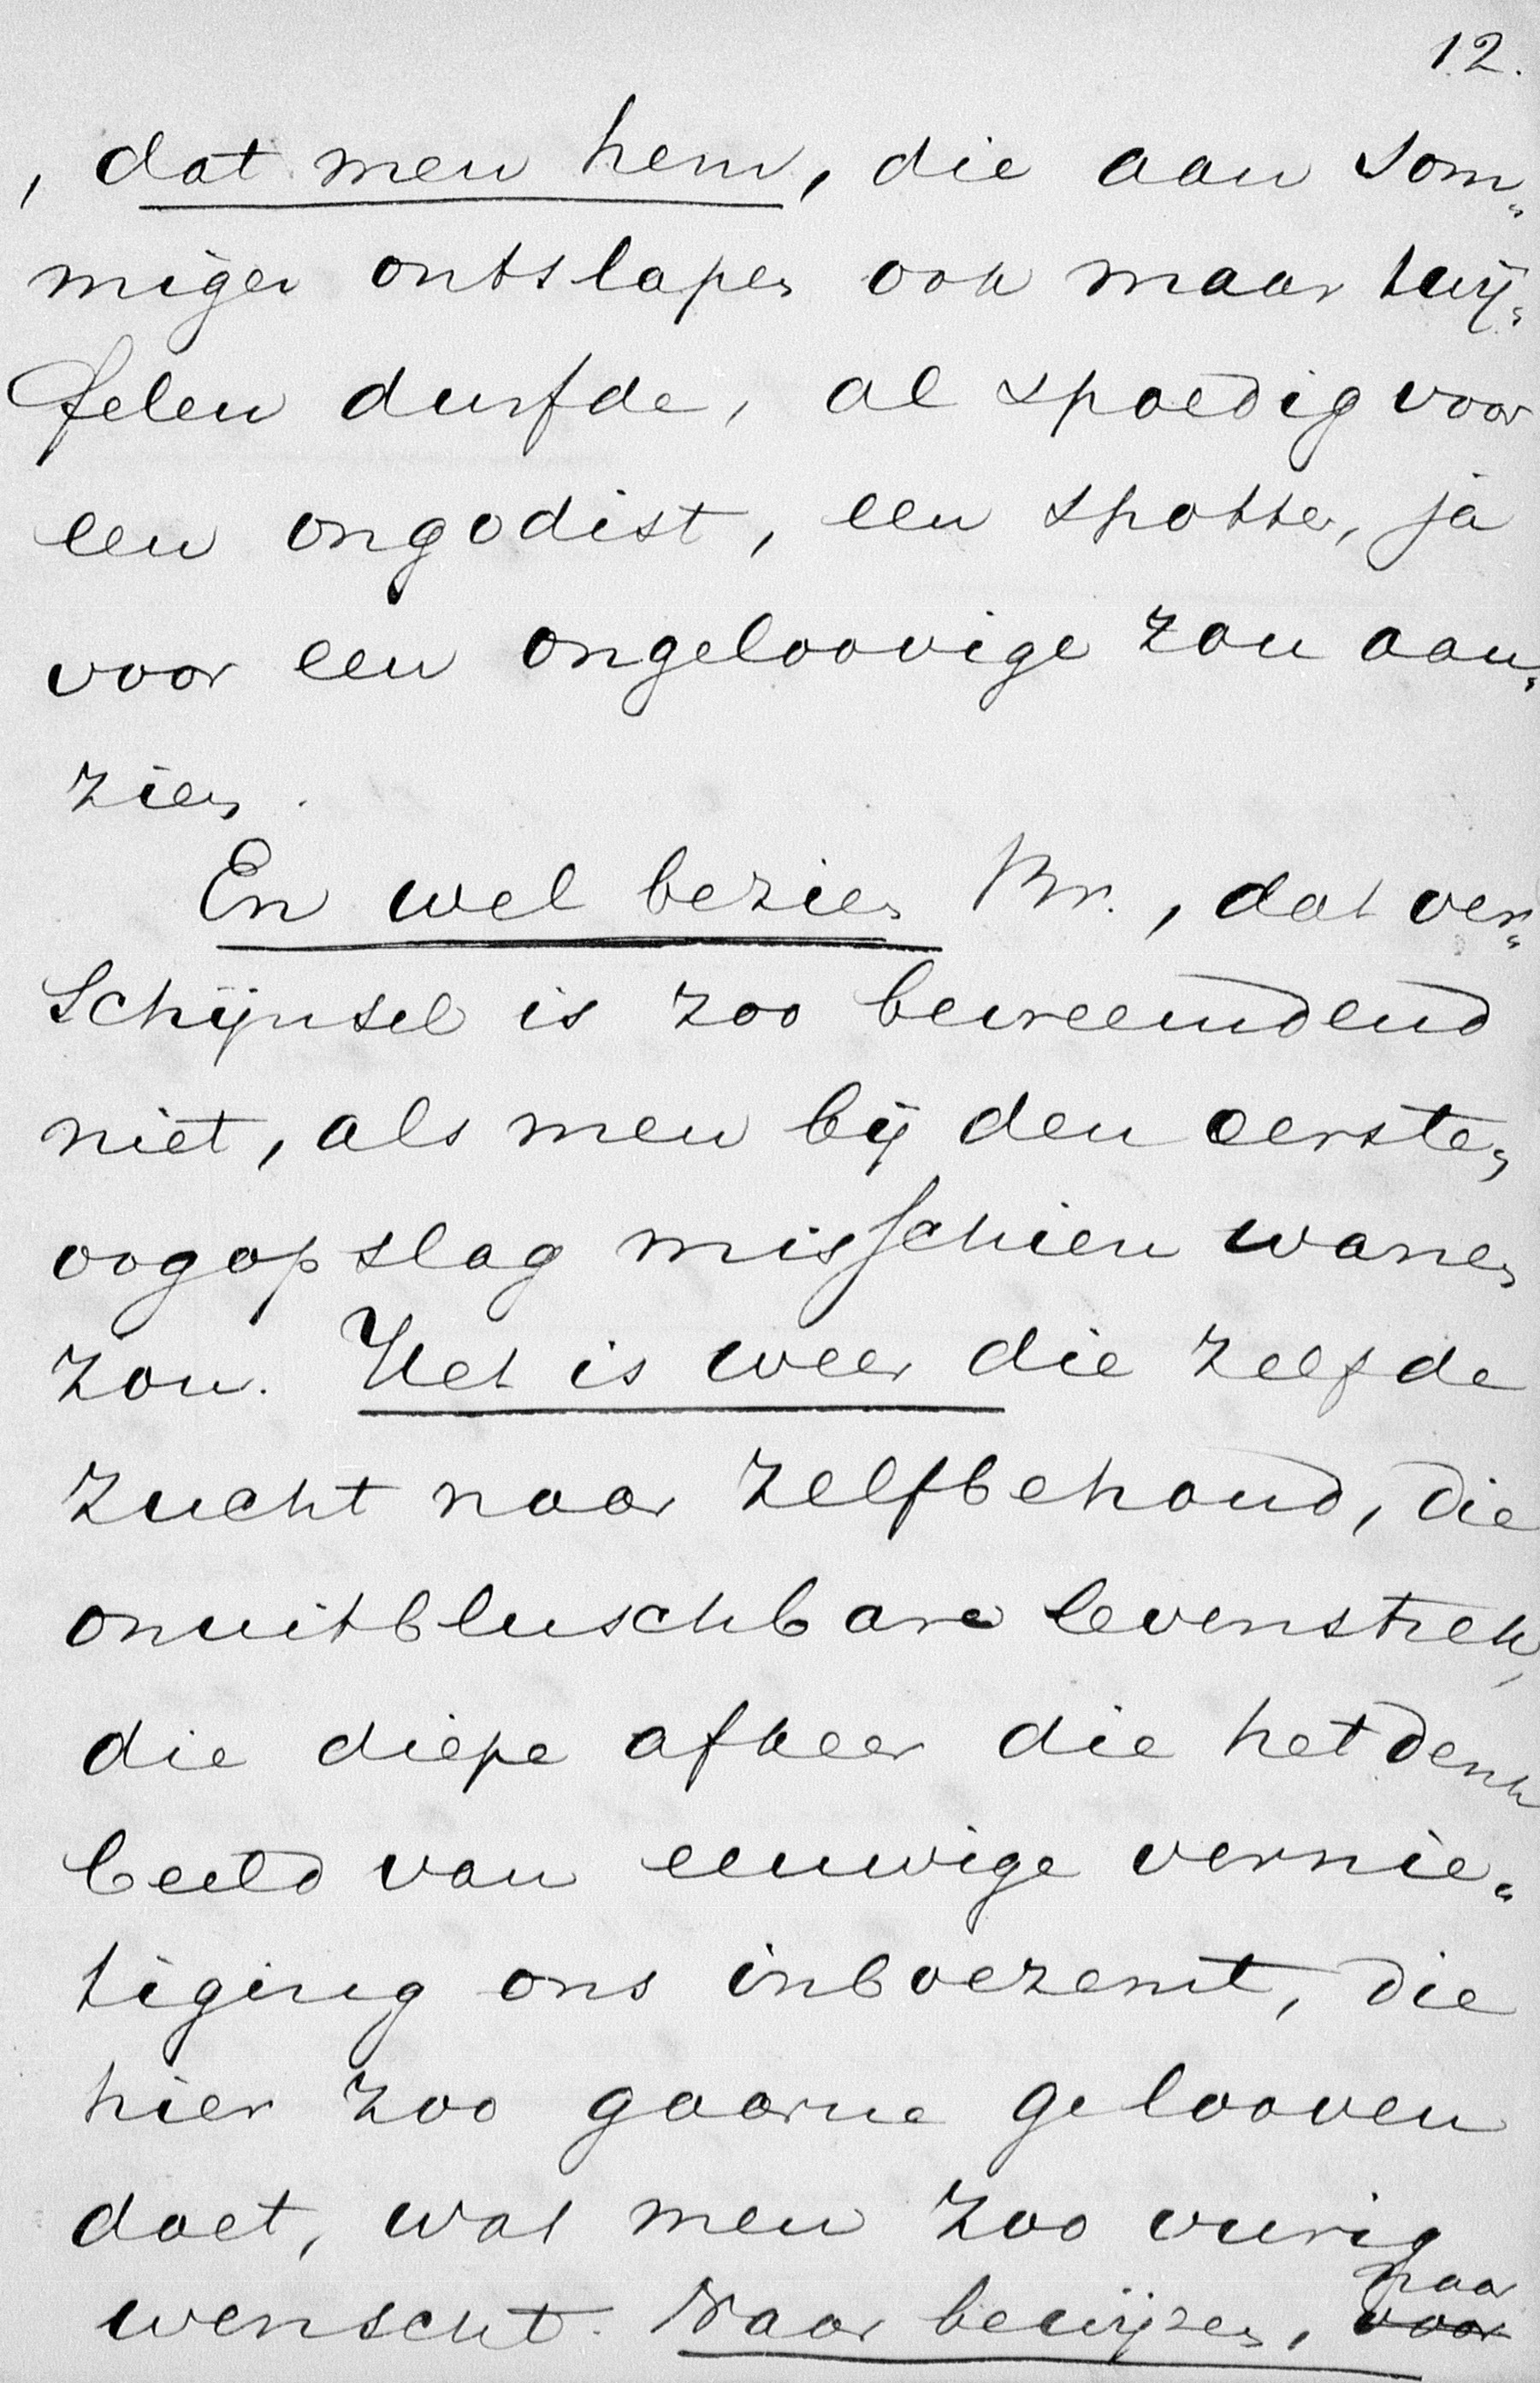 12.
, dat men hem, die aan som„
migen ontslapen ook maar twij„
felen durfde, al spoedig voor
een ongodist, een spotter, ja
voor een ongeloovige zou aan„
zien.
En wel bezien Br., dat ver„
schijnsel is zoo bevreemdend
niet, als men bij den eersten
oogopslag misschien wanen
zou. Het is weer die zelfde
zucht naar zelfbehoud, die
onuitbluschbare levenstrek,
die diepe afkeer die het denk
beeld van eeuwige vernie„
tiging ons inboezemt, die
hier zoo gaarne gelooven
doet, wat men zoo vurig
naar
wenscht. Naar bewijzen, voor